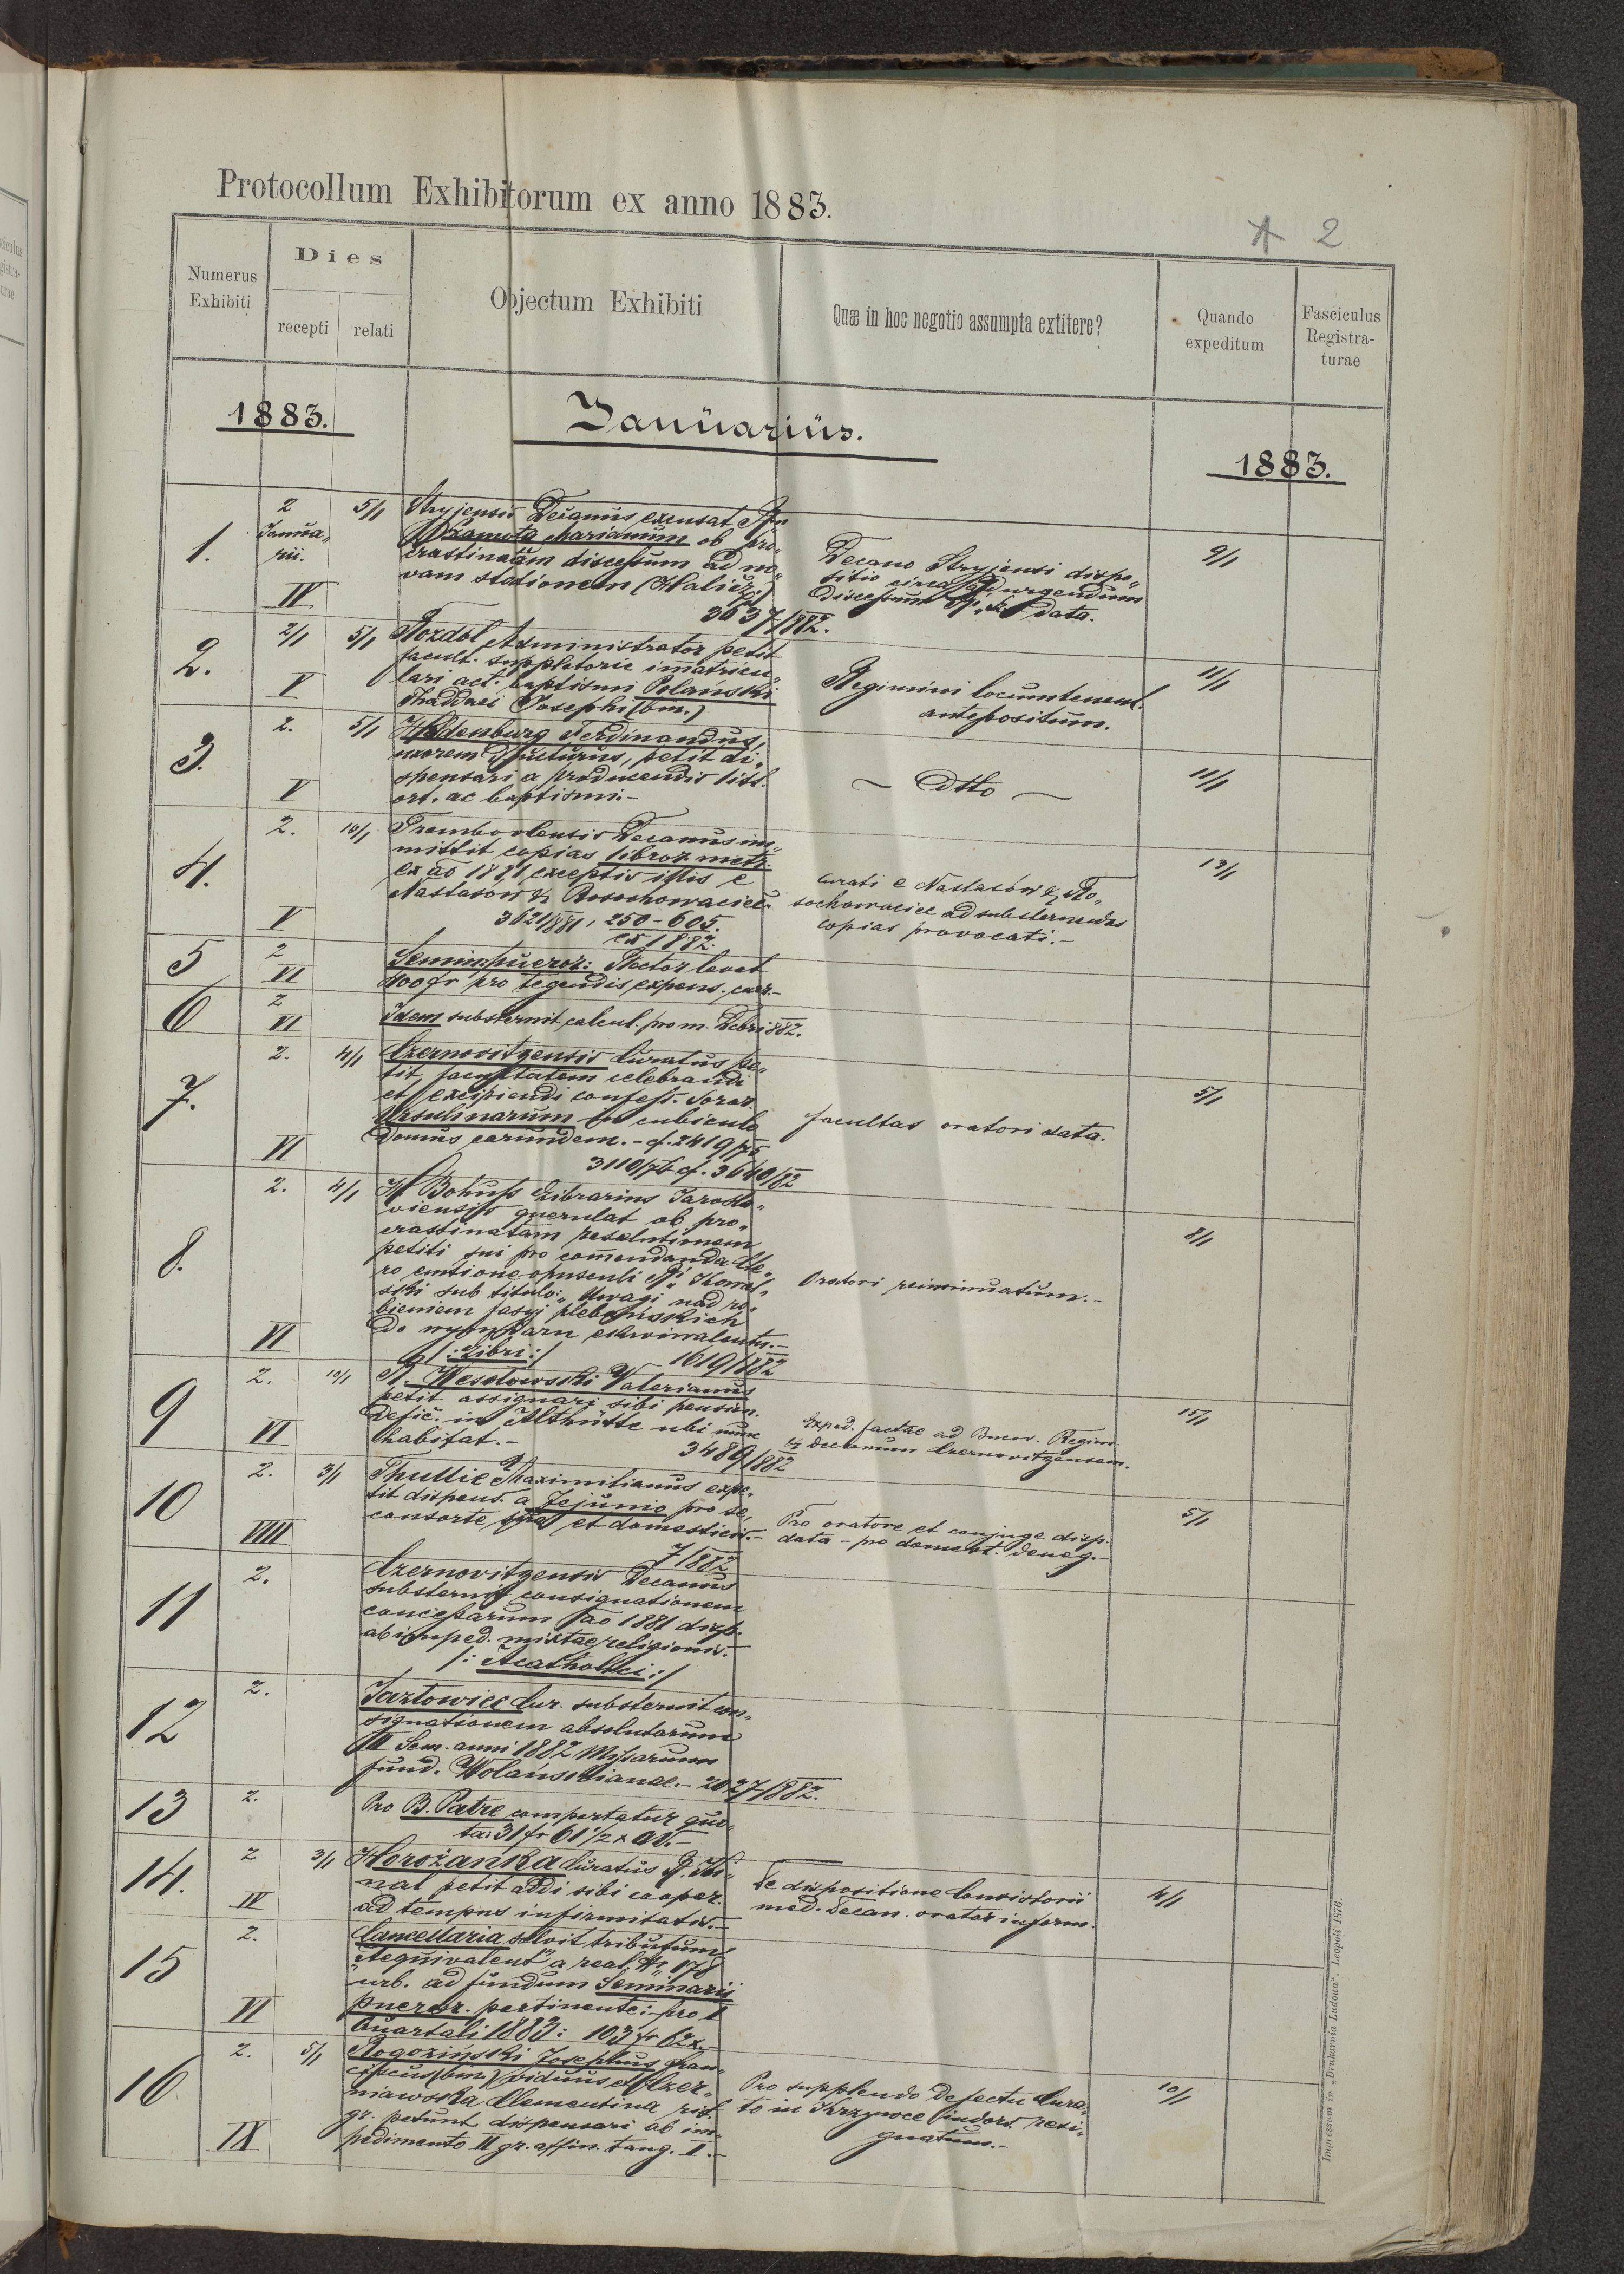 Protocollum Exhibitorum ex anno 1883.
A 2
Numerus Exhibiti
Dies
recepti
relati
Objectum Exhibiti
Quæ in hoc negotio assumpta extitere?
Quando expeditum
Fasciculus Registra-
turae
1883.
Januarius.
1883.
1.
2 Janua-
rii.
IV
5/1
Stryjensis Decanus excusat
Dżamota Marianum ob pro-
crastinatam discessum ad no-
vam stationem (Halicz)
3637/882.
Decano Stryjensi dispo-
sitio circa urgendum
discessum data.
9/1
2.
2/1
V
5/1
Rozdół Administrator petit
facult. suppletorie immatricu-
lari act. baptismi Polański
Thaddaei Josephi (bin.)
Regimini locumtenent.
antepositum.
11/1
3.
2.
V
5/1
Hildenburg Ferdinandus,
uxorem ducturus, petit di-
spensari a producendis litt.
ort. ac baptismi.-
~ dtto ~
11/1
4.
2.
V
10/1
Trembovlensis Decanus im-
mittit copias libror. metr.
ex ao 1881 exceptis istis e
Nastasów & Rosochowaciec.
3621/881, 250-605.
ex 1882.
Curati e Nastasów & Ro-
sochowaciec ad substernendas
copias provocati.-
12/1
5
2
VI
Semin. pueror: Rector levat
400 fr pro tegendis expens. curr.-
6
2
VI
Idem substernit calcul. pro m. Xbri 882.
7.
2.
VI
4/1
Czernovitzensis Curatus pe-
tit facultatem celebrandi
et excipiendi confess. Soror.
Ursulinarum in cubiculo
domus earundem.- cf. 2419/75
3110/76 cf. 3640/82
Facultas oratori data.
5/1
8.
2.
VI
4/1
Bohuss Librarius Jarosla-
viensis querulat ob pro-
crastinatam resolutionem
petiti sui pro commendanda Cle-
ro emtione opusculi Kowal-
ski sub titulo: "Uwagi nad ro-
bieniem fasyj plebańskich
do wymiaru ekwiwalentu.-
/:Libri:/ 1619/882
Oratori reiminuatum.-
8/1
9
2.
VI
10/1
R. Wesołowski Valerianus
petit assignari sibi pension.
defic. in Althütte ubi nunc
habitat.-
3489/882
Exped. factae ad Bucov. Regim.
& decanum Czernovitzensem.
15/1
10
2.
VIII
3/1
Thullie Maximilianus expe-
tit dispens. a Jejunio pro se,
consorte sua et domesticis.-
7/882
Pro oratore et conjuge disp.
data - pro domest. deneg.-
5/1
11
2.
Czernovitzensis Decanus
substernit consignationem
concessarum ao 1881 disp.
ab imped. mixtae religionis.-
/: Acatholici:/
12
2.
Jazłowiec Cur. substernit con-
signationem absolutarum
II Sem. anni 1882 Missarum
fund. Wolańskianae.- 2027/882.
13
2.
Pro B. Patre comportatur quo-
ta: 31 fr 61 1/2 x
14.
2
IV
3/1
Horożanka Curatus
petit addi sibi cooper.
ad tempus infirmitatis.-
De dispositione Consistorii
med. Decan. orator inform.
4/1
15
2.
VI
Cancellaria solvit tributum
"Aequivalent" a real. Nr 178
urb. ad fundum Seminarii
pueror. pertinente: pro I
Quartali 1883: 103 fr 62 x.-
16
2.
IX
5/1
Rogoziński Josephus Fran-
ciscus (bin.) viduus et Czer-
niawska Clementina rit.
gr. petunt dispensari ab im-
pedimento II gr. affin. tang. I.-
Pro supplendo defectu Cura-
to in indors. resi-
gnatum.-
10/1
Impressum in „Drukarnia Ludowa". Leopoli 1876.